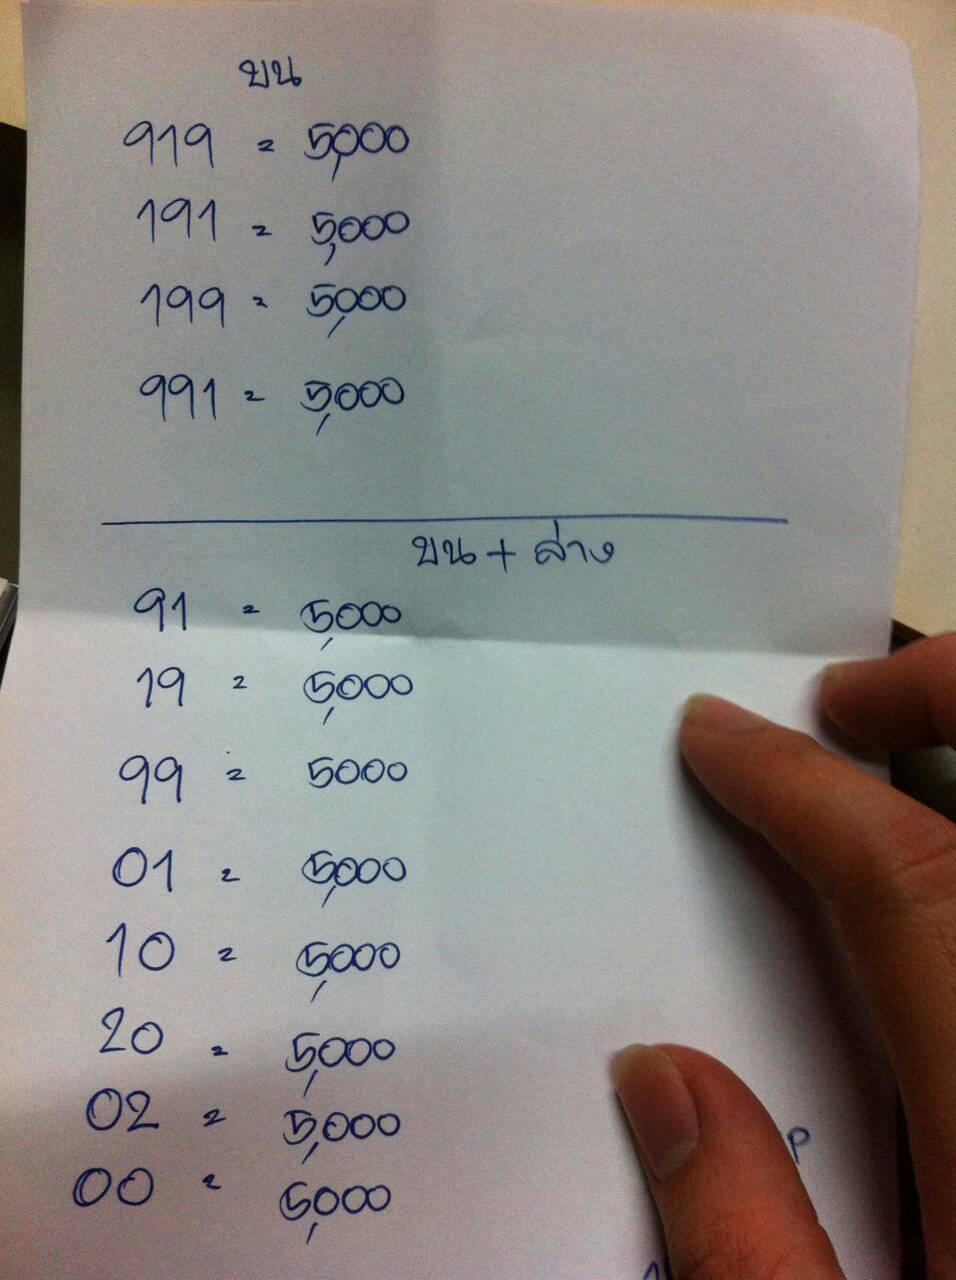 บน
919 = 5,000
191 = 5,000
199 = 5,000
991 = 5,000
บน + ล่าง
91 = 5,000
19 = 5,000
99 = 5000
01 = 5,000
10 = 5,000
20 = 5,000
02 = 5,000
00 = 5,000